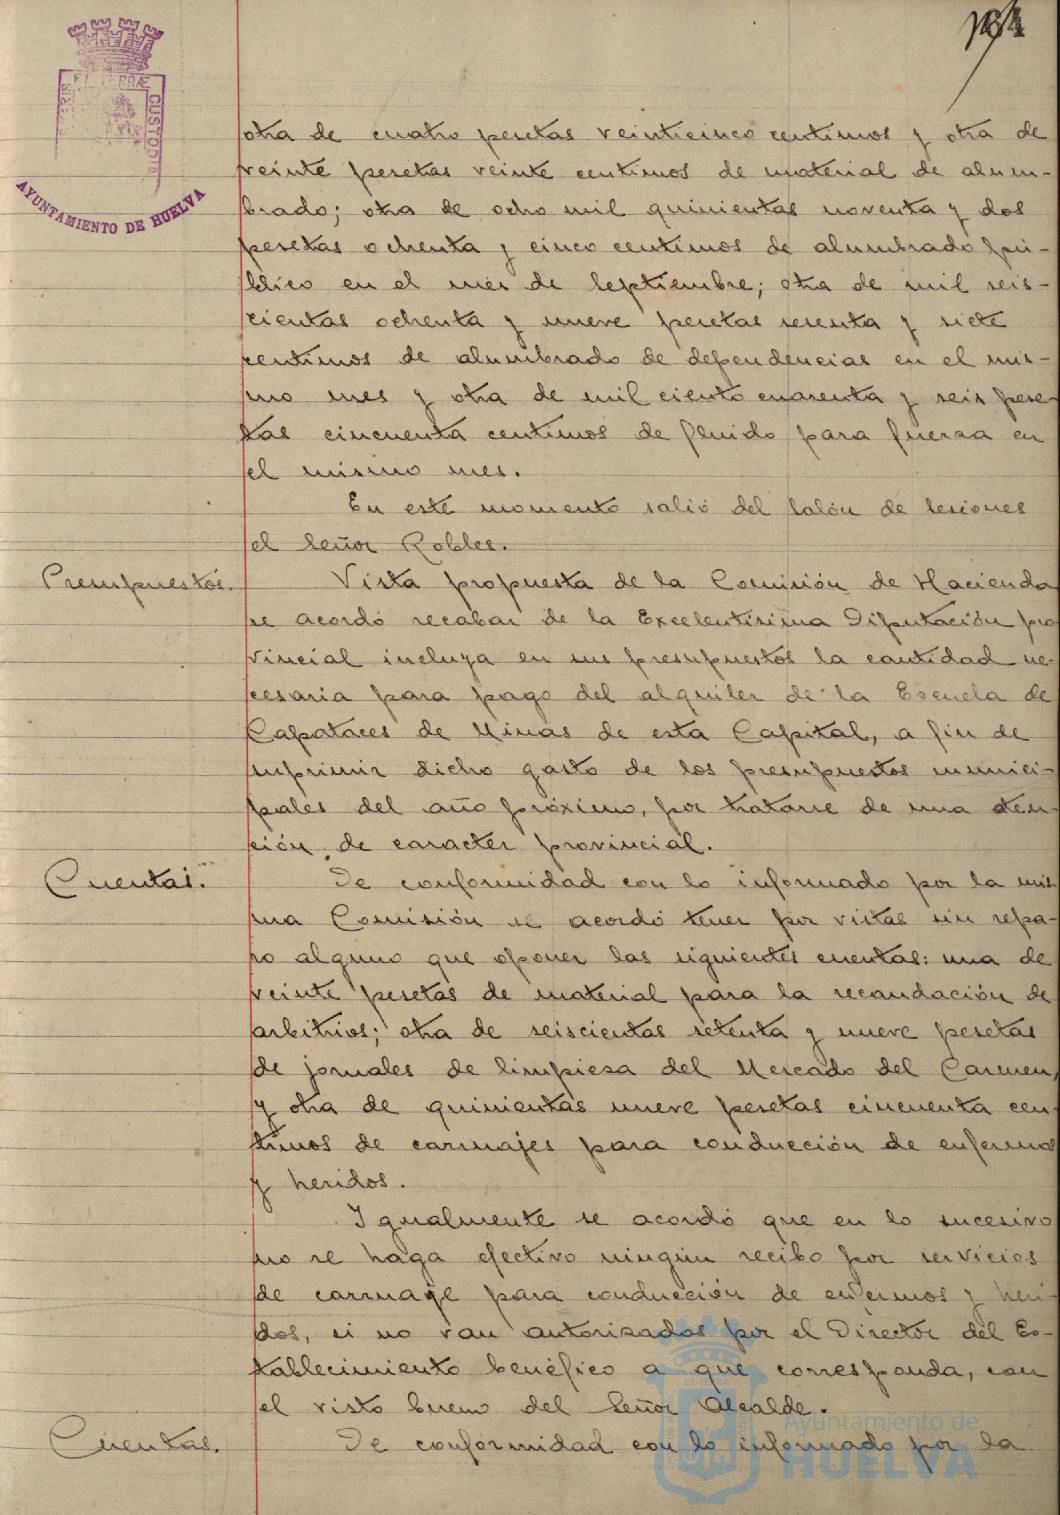 164
PORTUS MARIS ET TERRÆ CUSTODIA
AYUNTAMIENTO DE HUELVA
otra de cuatro pesetas veinticinco centimos y otra de
veinte pesetas veinte centimos de material de alum-
brado; otra de ocho mil quinientas noventa y dos
pesetas ochenta y cinco centimos de alumbrado pú-
blico en el mes de Septiembre; otra de mil seis-
cientas ochenta y nueve pesetas sesenta y siete
centimos de alumbrado de dependencias en el mis-
mo mes y otra de mil ciento cuarenta y seis pese-
tas cincuenta centimos de fluido para fuerza en
el mismo mes.
En este momento salió del Salón de Sesiones
el Señor Robles.
Presupuestos. Vista propuesta de la Comisión de Hacienda
se acordó recabar de la Excelentisima Diputación pro
vincial incluya en sus presupuestos la cantidad ne-
cesaria para pago del alquiler de la Escuela de
Capataces de Minas de esta Capital, a fin de
suprimir dicho gasto de los presupuestos munici-
pales del año próximo, por tratarse de una aten-
ción de caracter provincial.
Cuentas. De conformidad con lo informado por la mis-
ma Comisión se acordó tener por vistas sin repa-
ro alguno que oponer las siguientes cuentas: una de
veinte pesetas de material para la recaudación de
arbitrios; otra de seiscientas setenta y nueve pesetas
de jornales de limpieza del Mercado del Carmen,
y otra de quinientas nueve pesetas cincuenta cen-
timos de carruajes para conducción de enfermos
y heridos.
Igualmente se acordó que en lo sucesivo
no se haga efectivo ningún recibo por servicios
de carruaje para conducción de enfermos y heri-
dos, si no van autorizados por el Director del Es-
tablecimiento benéfico a que corresponda, con
el visto bueno del Señor Alcalde.
Cuentas. De conformidad con lo informado por la
Ayuntamiento de
HUELVA